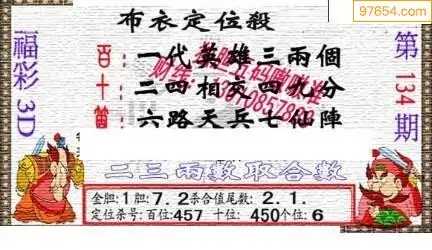 97654.com
布衣定位殺
福彩3D
第134期
百：一代英雄三兩個
十：二四相交四九分
六路天兵七仙陣
二三兩数取合数
金胆:1胆:7.2杀合值尾数:2.1.
定位杀号:百位:457 十位:450个位:6